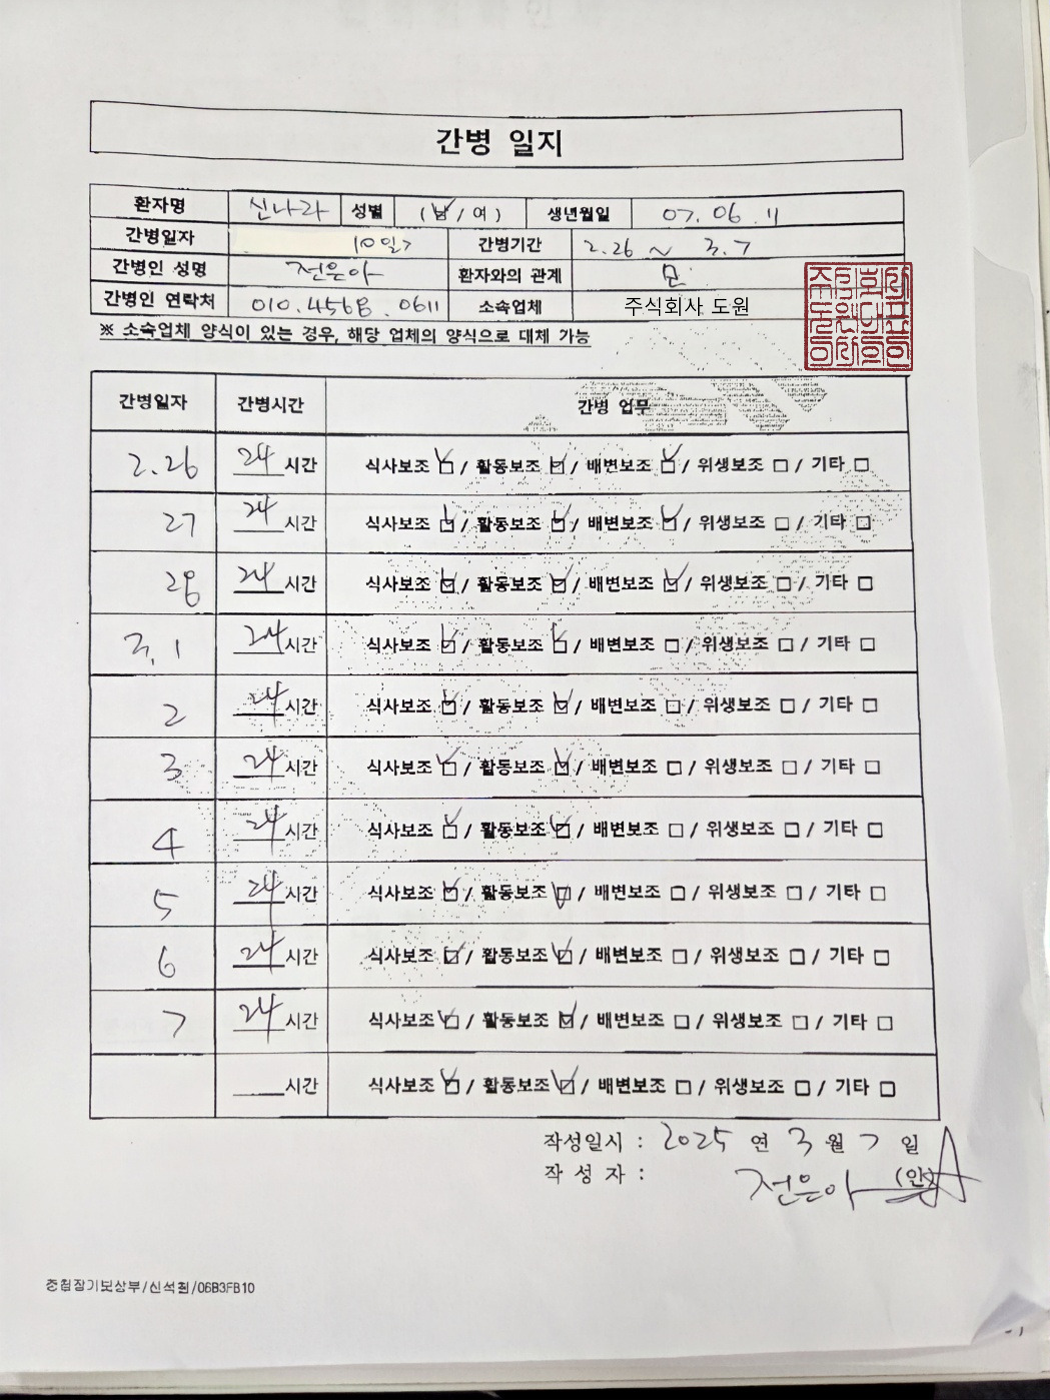 간병 일지
환자명 신나라 성별 (남/여) 생년월일 07.06.11
간병일자 10일 간병기간 2.26 ~ 3.7
간병인 성명 전은아 환자와의 관계 모
간병인 연락처 010.4568.0611 소속업체 주식회사 도원
※ 소속업체 양식이 있는 경우, 해당 업체의 양식으로 대체 가능
간병일자 간병시간 간병 업무
2.26 24 시간 식사보조 ☑ / 활동보조 ☑ / 배변보조 ☑ / 위생보조 □ / 기타 □
27 24 시간 식사보조 ☑ / 활동보조 ☑ / 배변보조 ☑ / 위생보조 □ / 기타 □
28 24 시간 식사보조 ☑ / 활동보조 ☑ / 배변보조 ☑ / 위생보조 □ / 기타 □
3.1 24 시간 식사보조 ☑ / 활동보조 ☑ / 배변보조 □ / 위생보조 □ / 기타 □
2 24 시간 식사보조 ☑ / 활동보조 ☑ / 배변보조 □ / 위생보조 □ / 기타 □
3 24 시간 식사보조 ☑ / 활동보조 ☑ / 배변보조 □ / 위생보조 □ / 기타 □
4 24 시간 식사보조 ☑ / 활동보조 ☑ / 배변보조 □ / 위생보조 □ / 기타 □
5 24 시간 식사보조 ☑ / 활동보조 ☑ / 배변보조 □ / 위생보조 □ / 기타 □
6 24 시간 식사보조 ☑ / 활동보조 ☑ / 배변보조 □ / 위생보조 □ / 기타 □
7 24 시간 식사보조 ☑ / 활동보조 ☑ / 배변보조 □ / 위생보조 □ / 기타 □
시간 식사보조 ☑ / 활동보조 ☑ / 배변보조 □ / 위생보조 □ / 기타 □
작성일시 : 2025 년 3 월 7 일
작 성 자 : 전은아 (인)
중첩장기보상부/신석원/06B3FB10